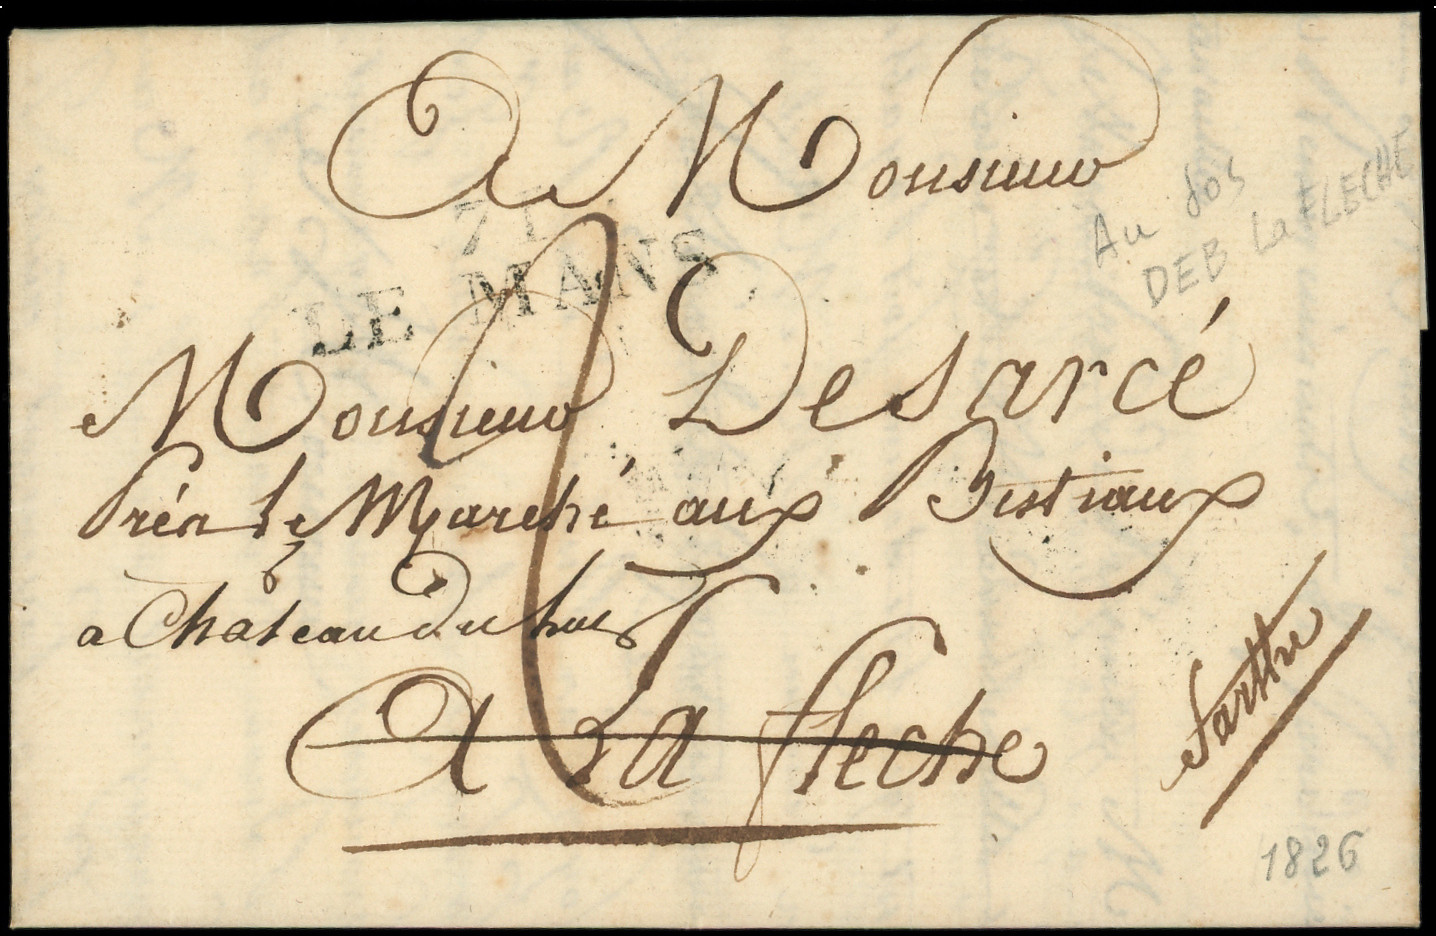 A Monsieur
71
LE MANS
Au dos
DEB La FLECHE
Monsieur Desarcé
Près le Marché aux Bestiaux
a Château du
A La fleche
Sarthe
1826